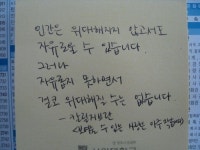 인간은 위대해지지 않고서도
자유로울 수 있습니다
그러나
자유롭지 못하면서
결코 위대해질 수는 없습니다
- 칼릴지브란